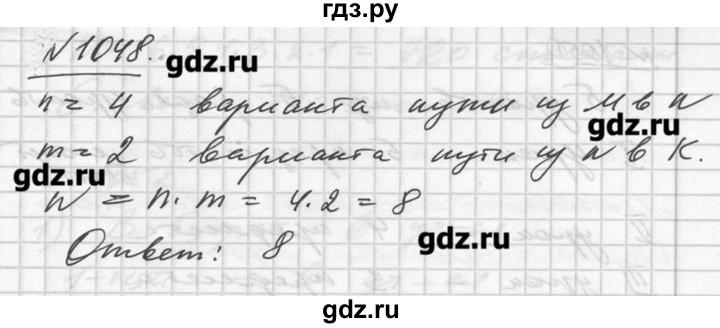 гдз.ру
№1048.
gdz.ru
n = 4 варианта пути из М в N
gdz.ru
m = 2 варианта пути из N в К.
gdz.ru
N = n · m = 4 · 2 = 8
Ответ: 8
gdz.ru
gdz.ru